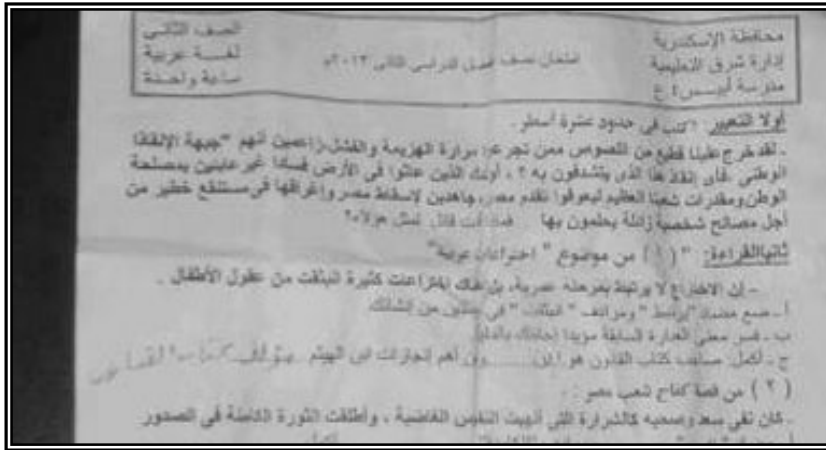 محافظة الإسكندرية
إدارة شرق التعليمية
مدرسة أبيس ٤ ع
امتحان نصف الفصل الدراسي الثاني ٢٠١٣م
الصف الثاني
لغة عربية
ساعة واحدة
أولا التعبير: اكتب في حدود عشرة أسطر.
- لقد خرج علينا قطيع من اللصوص ممن تجرعوا مرارة الهزيمة والفشل زاعمين أنهم "جبهة الإنقاذ
الوطني، فأي إنقاذ هذا الذي يتشدقون به؟، أولئك الذين عاثوا في الأرض فسادا غير عابئين بمصلحة
الوطن ومقدرات شعبنا العظيم ليعوقوا تقدم مصر، جاهدين لإسقاط مصر وإغراقها في مستنقع خطير من
أجل مصالح شخصية زائلة يحلمون بها فماذا أنت قائل لمثل هؤلاء؟
ثانيا القراءة: " (١) من موضوع " اختراعات عربية"
- إن الاختراع لا يرتبط بمرحلة عمرية، بل هناك اختراعات كثيرة انبثقت من عقول الأطفال.
أ - ضع مضاد "يرتبط" ومرادف "انبثقت" في جملتين من إنشائك
ب - فسر معنى العبارة السابقة مؤيدا إجابتك بالدليل
ج - أكمل: صاحب كتاب القانون هو ابن ...... ومن أهم إنجازات ابن الهيثم
(٢) من قصة كفاح شعب مصر :-
- كان نفي سعد وصحبه كالشرارة التي ألهبت النفوس الغاضبة، وأطلقت الثورة الكامنة في الصدور